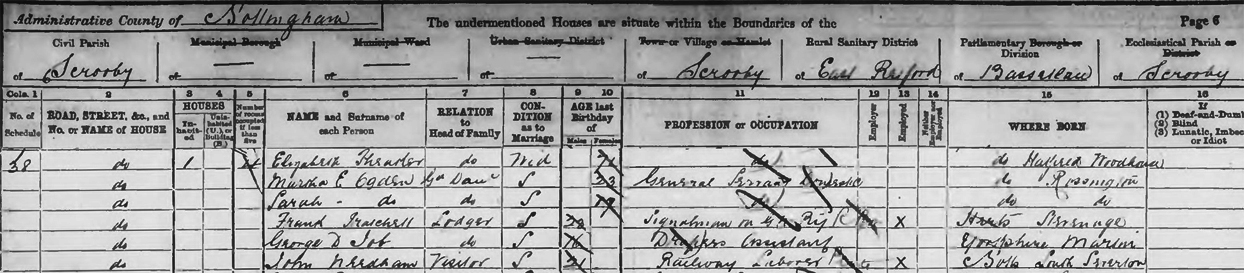 Administrative County of Nottingham The undermentioned Houses are situate within the Boundaries of the Page 6
Civil Parish Municipal Borough Municipal Ward Urban Sanitary District Town or Village or Hamlet Rural Sanitary District Parliamentary Borough or Division Ecclesiastical Parish or District
of Scrooby of — of — of — of Scrooby of East Retford of Bassetlaw of Scrooby
Cols. 1 2 3 4 5 6 7 8 9 10 11 12 13 14 15 16
No. of Schedule ROAD, STREET, &c., and No. or NAME of HOUSE HOUSES Inhabited Uninhabited (U.), or Building (B.) Number of rooms occupied if less than five NAME and Surname of each Person RELATION to Head of Family CONDITION as to Marriage AGE last Birthday of Males Females PROFESSION or OCCUPATION Employer Employed Neither Employer nor Employed WHERE BORN If (1) Deaf-and-Dumb (2) Blind (3) Lunatic, Imbec or Idiot
38 do 1 4 Elizabeth do Wid do do Woodhouse
do Martha E Ogden Gd Daur S 23 General Servant Domestic do Rossington
do Sarah - do do S 19 do do do
do Frank Lodger S Signalman on G N Rly X Herts Stevenage
do George D Job do S Drapers Assistant Yorkshire
do John Needham Visitor S 21 Railway Laborer X Notts